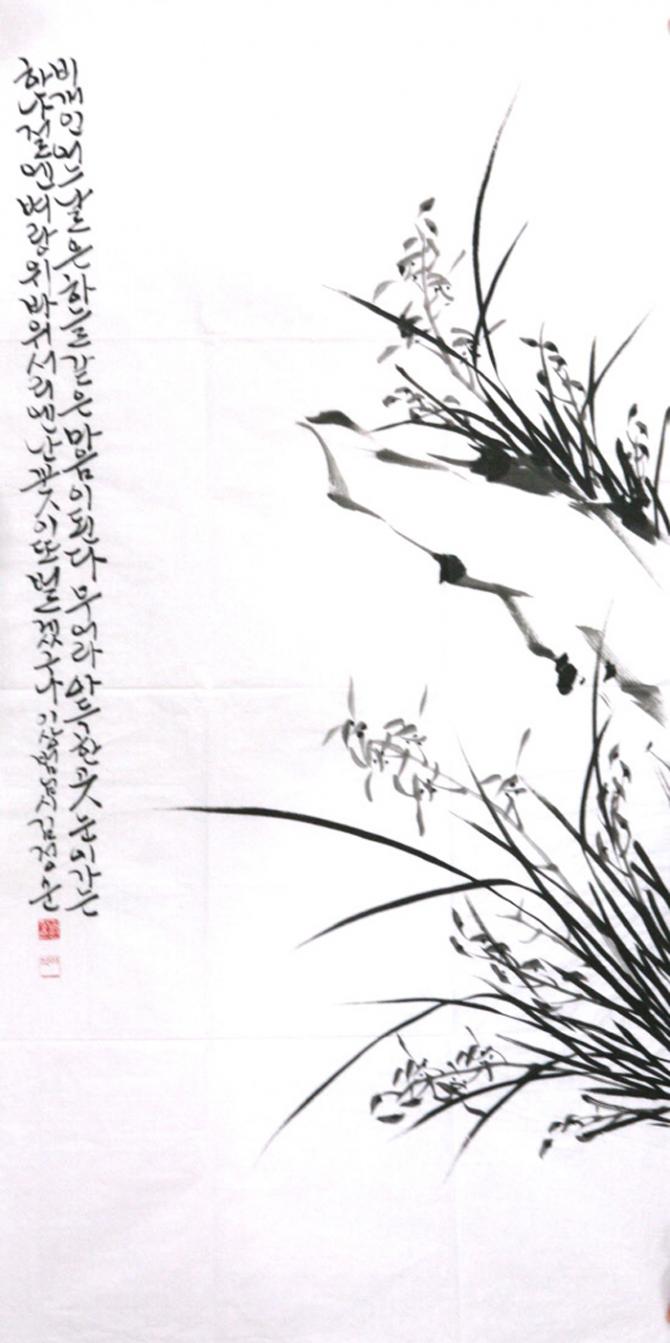 비개인 어느날은 하늘같은 마음이 된다 무어라 아득한 곳 눈이가는
하늘절엔 벼랑위 바위서리엔 난꽃이 또 벌겠구나 이상범님 시 김정순